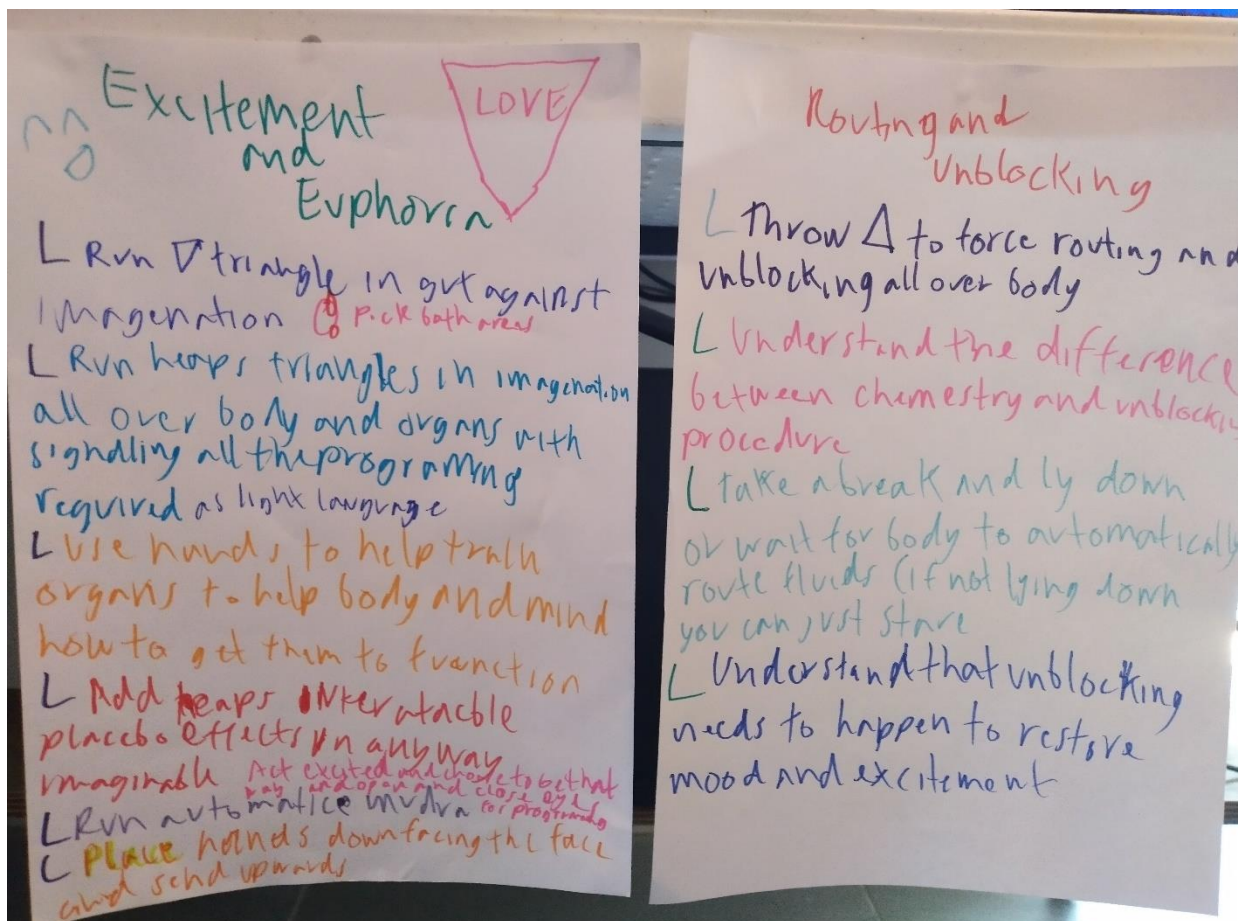 Excitement
and
Euphoria
LOVE
L Run ▽ triangle in gut against
imagenation pick both areas
L Run heaps triangles in imagenation
all over body and organs with
signalling all the programing
required as light language
L use hands to help train
organs to help body and mind
how to get them to function
L Add heaps interatacble
placebo effects in anyway
imaginable Act excited and choose to be that
way and open and close eyes
L Run automatice mudra for programing
L Place hands down facing the face
and send upwards
Routing and
unblocking
L Throw △ to force routing and
unblocking all over body
L Understand the difference
between chemestry and unblocking
procedure
L take a break and ly down
or wait for body to automatically
route fluids (if not lying down
you can just stare
L Understand that unblocking
needs to happen to restore
mood and excitement